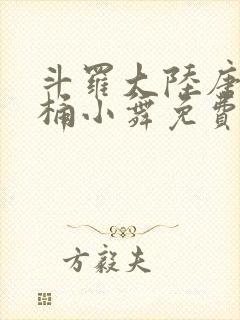 斗羅大陸唐
桶小舞免費
方毅夫